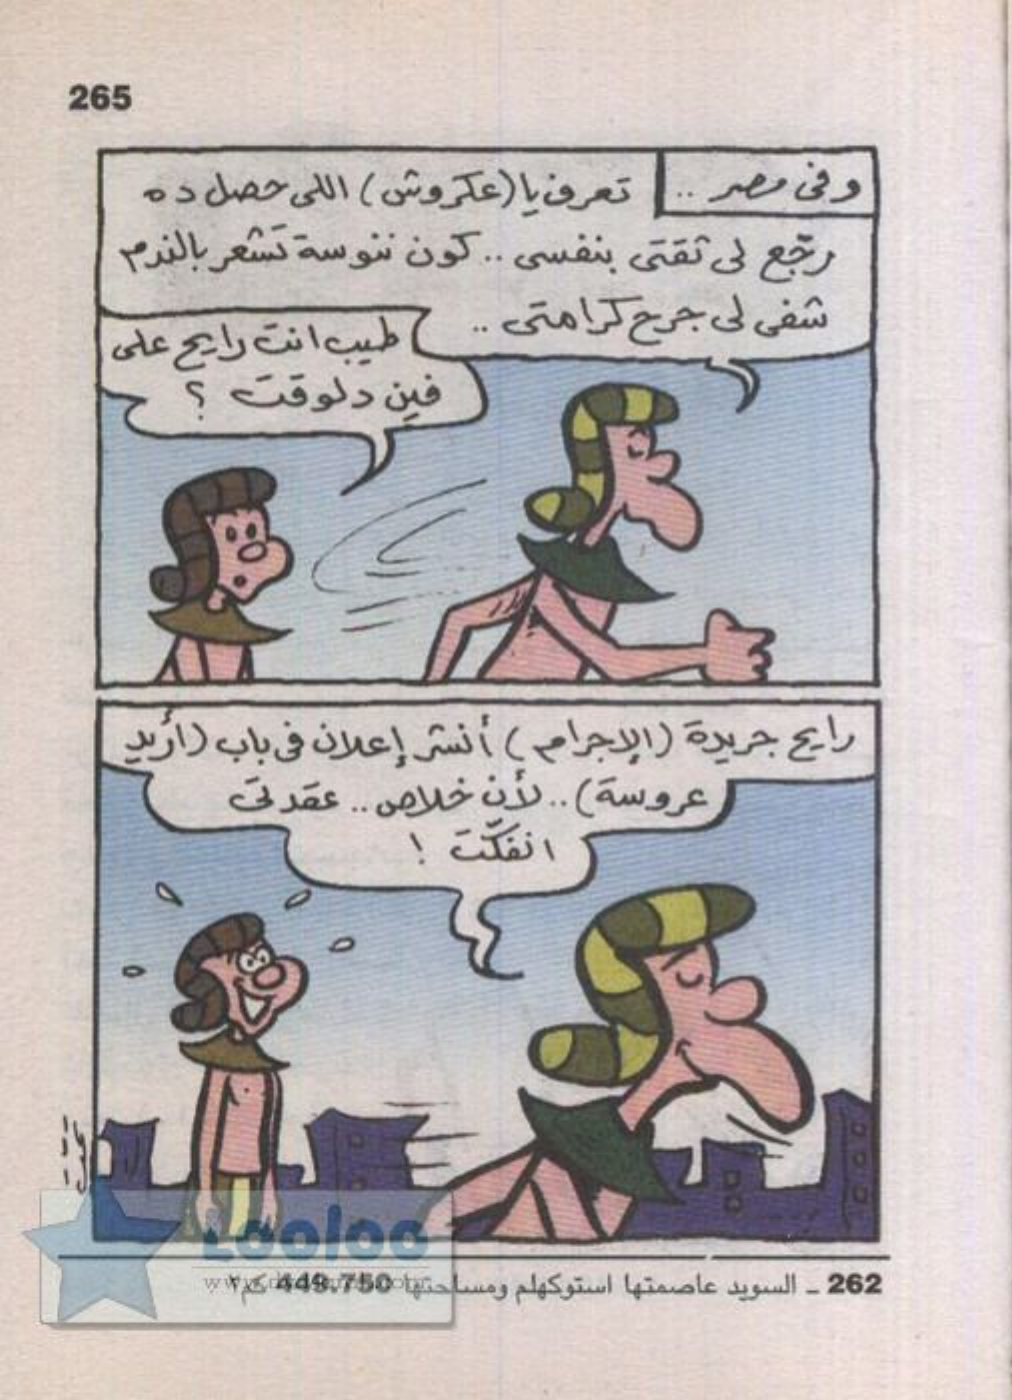 265
وفى مصر ..
تعرف يا (عكروش) اللى حصل ده
رجّع لى ثقتى بنفسى .. كون ننوسة تشعر بالندم
شفى لى جرح كرامتى ..
طيب انت رايح على
فين دلوقت ؟
رايح جريدة (الإجرام) أنشر إعلان فى باب (أريد
عروسة) .. لأن خلاص .. عقدتى
انفكّت !
262 ـ السويد عاصمتها استوكهلم ومساحتها 449.750 كم٢
Looloo